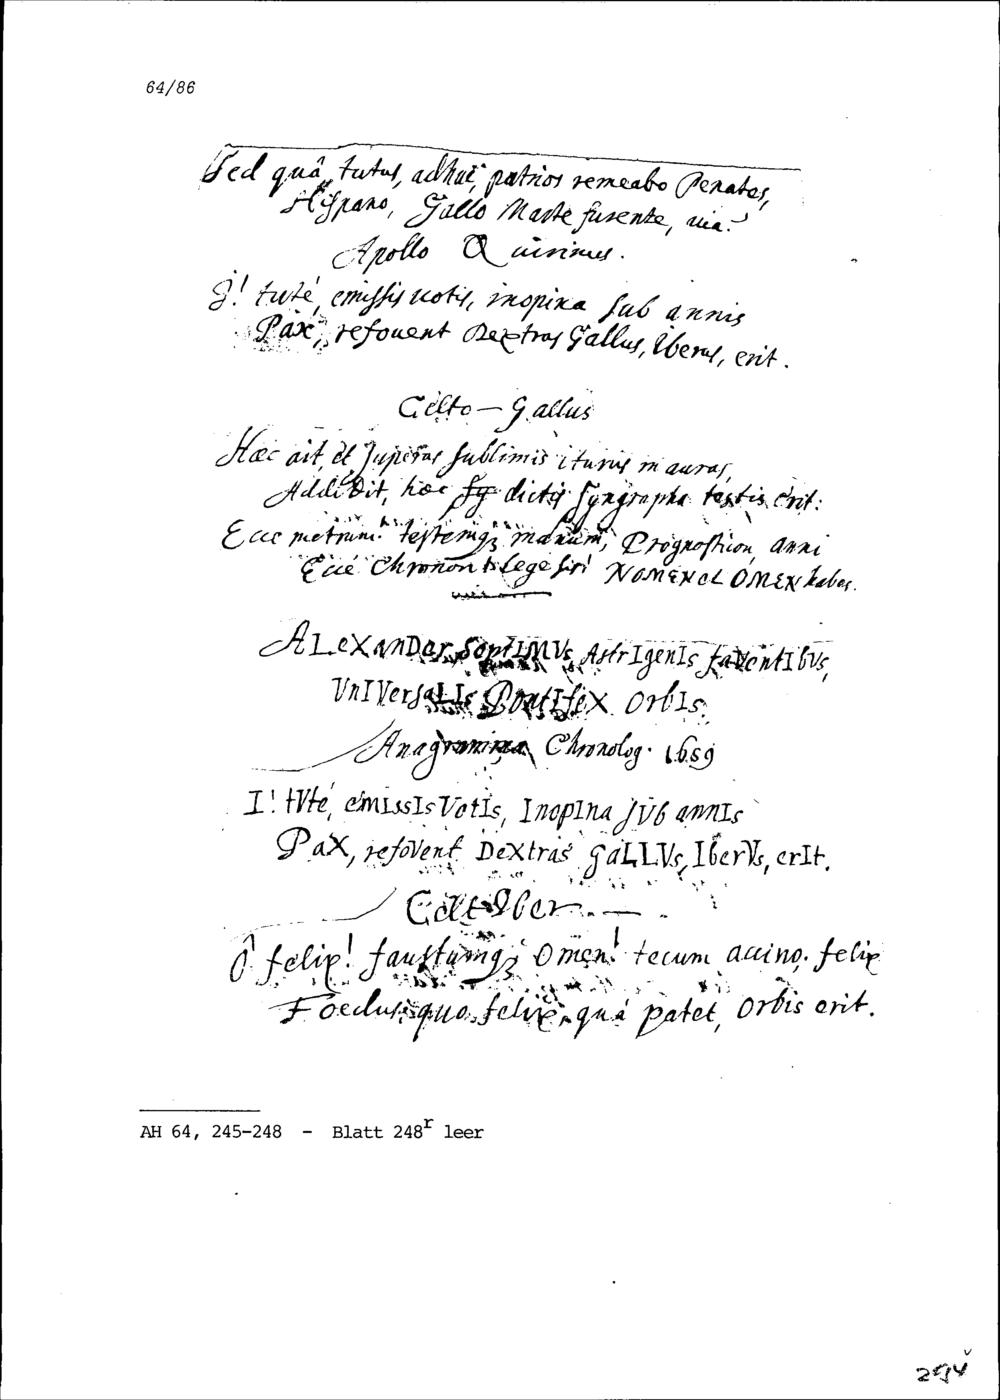 64/86
Sed quâ, tutus, adhuc, patrios remeabo Penates,
Hispano, Gallo Marte furente, uia?
Apollo Quirinus.
J! tuté, emissis uotis, inopina sub annis
Pax, refouent Dextras Gallus, Iberus, erit.
Celto-Gallus
Hæc ait, et superas sublimis iturus in auras,
Addidit, hæc dictis syngrapha testis erit:
Ecce metrum testemq; manum, Prognosticon anni
Ecce Chronon lege NOMEN et OMEN habes.
ALeXanDer SeptIMVs AstrIgenIs faVentIbVs,
VnIVersaLIs PontIfeX OrbIs.
Anagramma Chronolog. 1659
I! tVté, emIssIs VotIs, InopIna sVb annIs
PaX, refoVent DeXtras GaLLVs, IberVs, erIt.
CeltIber.
Ô felix! faustumq; Omen! tecum accino. felix
Foedus quo felix, quá patet, Orbis erit.
AH 64, 245-248 - Blatt 248r leer